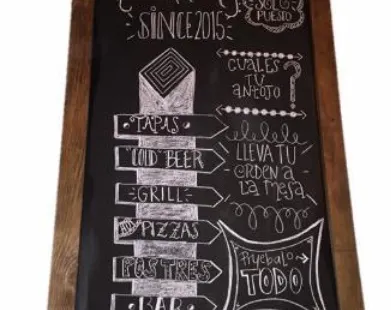 SOLO
PUESTO
SINCE 2015
CUALES
TU
ANTOJO
?
TAPAS
"COLD" BEER
GRILL
PIZZAS
POSTRES
BAR
LLEVA TU
ORDEN A
LA MESA
Pruébalo
TODO